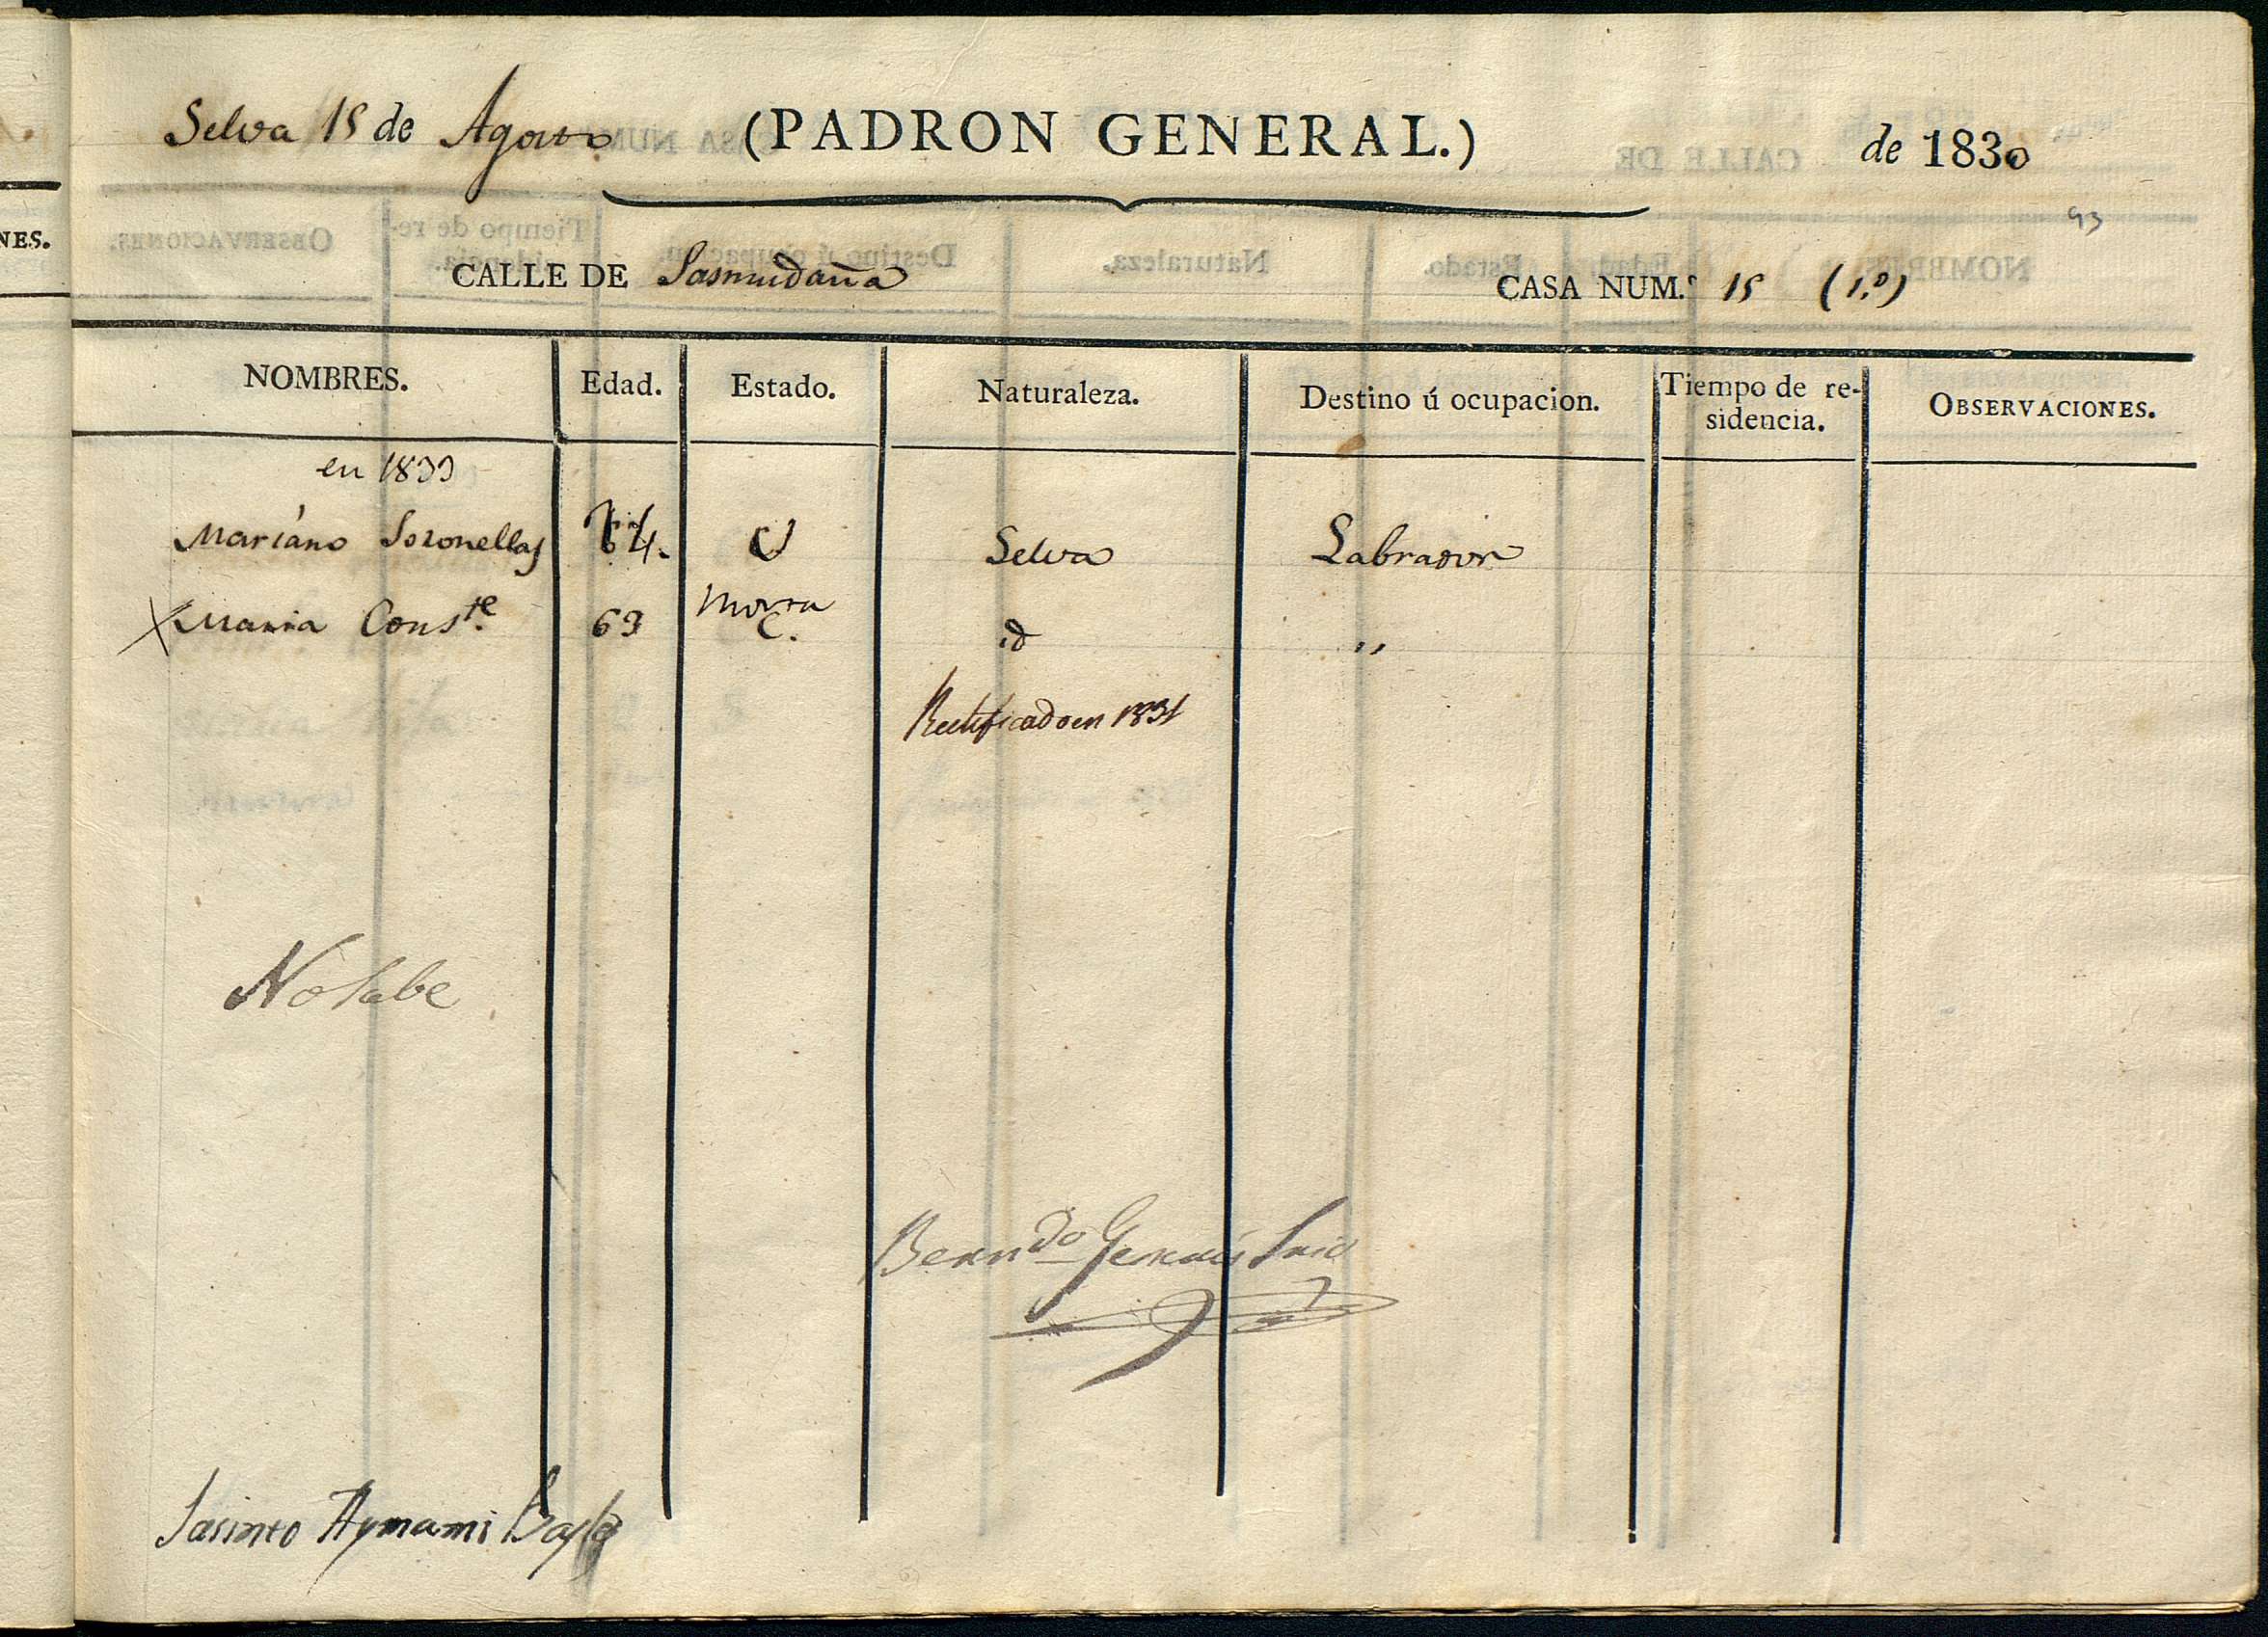 Selva 15 de Agosto (PADRON GENERAL.) de 1830
93
CALLE DE Sasmudaña CASA NUM.º 15 (1.º)
NOMBRES. Edad. Estado. Naturaleza. Destino ú ocupacion. Tiempo de re- OBSERVACIONES.
sidencia.
en 1833
Mariano Soronellas 64. Selva Labrador
Maria Cons.te 63 C. id "
Rectificado en 1831
No sabe
Bern.do Srio
Jasinto Aymami Bayle
NES.